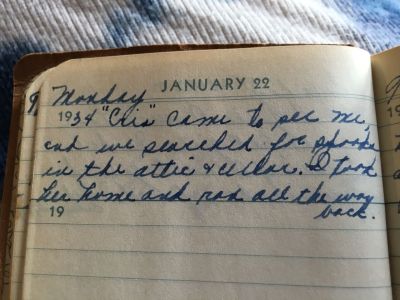 JANUARY 22
Monday
1934 "Cris" came to see me,
and we searched for spooks
in the attic & cellar. I took
her home and ran all the way
19 back.